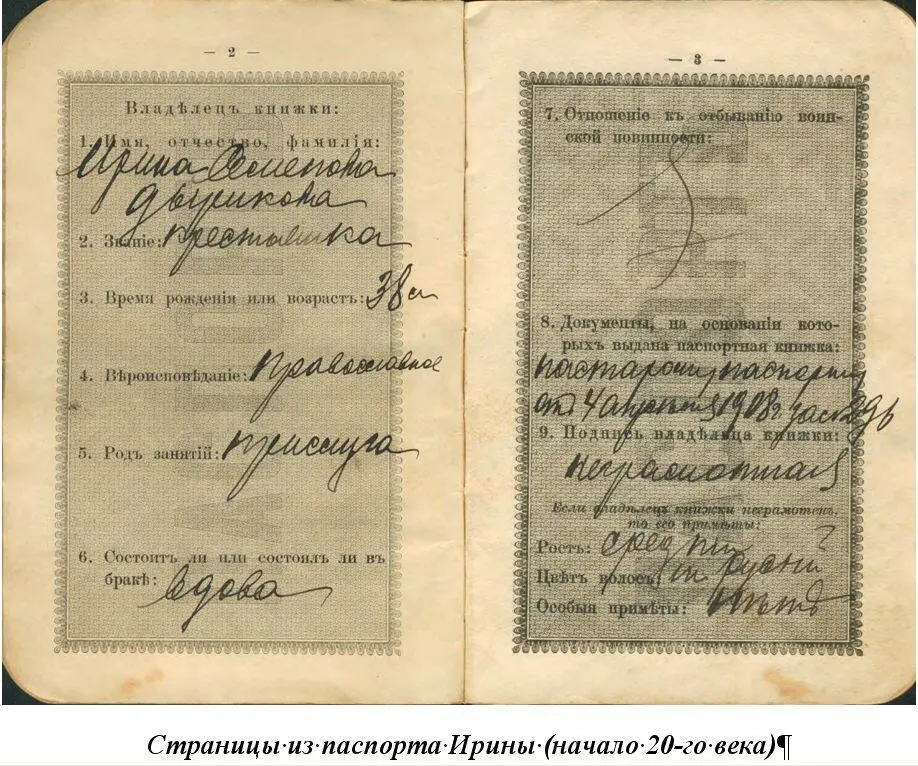 — 2 —
Владѣлецъ книжки:
1. Имя, отчество, фамилія:
Ирина Семенова
Дырикова
2. Званіе: крестьянка
3. Время рожденія или возрастъ: 38
4. Вѣроисповѣданіе: православное
5. Родъ занятій: прислуга
6. Состоитъ ли или состоялъ ли въ
бракѣ: вдова
— 3 —
7. Отношеніе къ отбыванію воин-
ской повинности:
8. Документы, на основаніи кото-
рыхъ выдана паспортная книжка:
по старому паспорту
от 4 апрѣля 1908 г за №
9. Подпись владѣльца книжки:
неграмотная
Если владѣлецъ книжки неграмотенъ,
то его примѣты:
Ростъ: средній
Цвѣтъ волосъ: русый
Особыя примѣты: нѣтъ
ПАСПОРТ
Страницы·из·паспорта·Ирины·(начало·20-го·века)¶